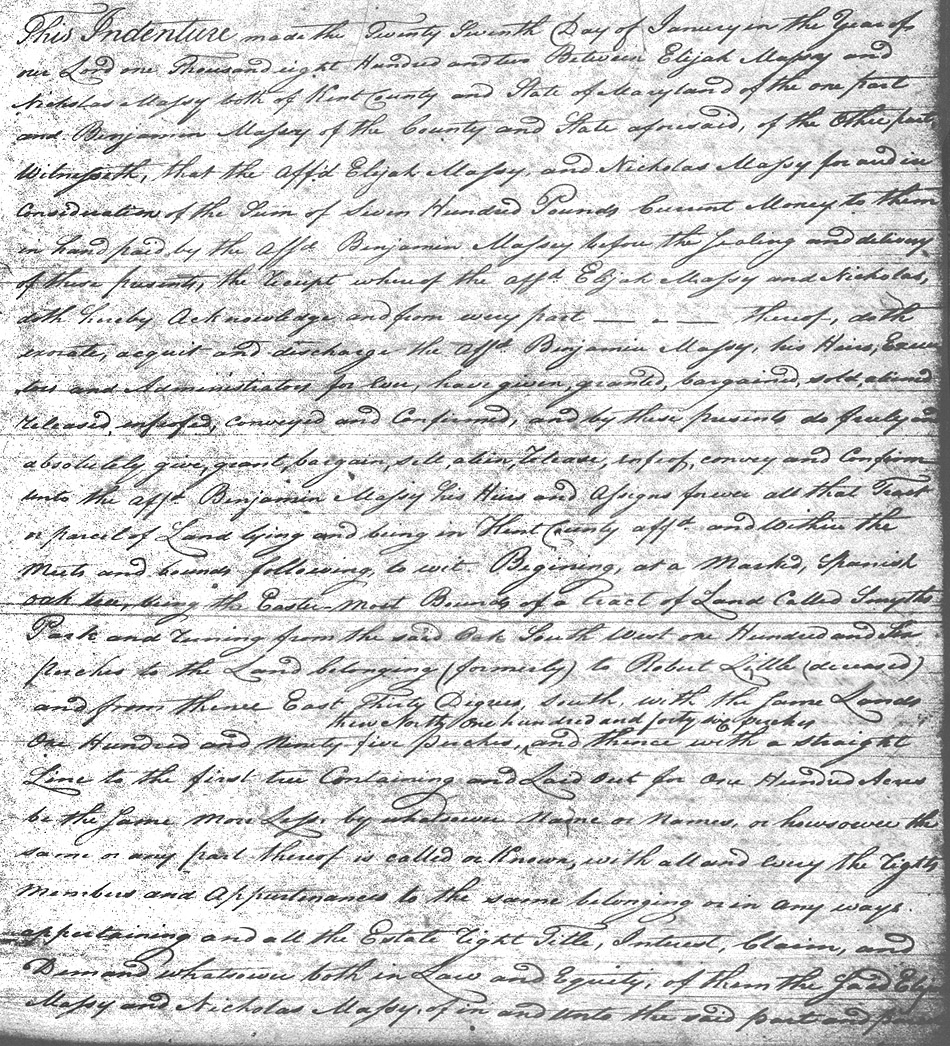 This Indenture made the Twenty Seventh Day of January in the Year of
our Lord one Thousand eight Hundred and ten Between Elijah Massy and
Nicholas Massy both of Kent County and State of Maryland of the one part
and Benjamin Massy of the County and State aforesaid, of the Other part
Witnesseth, that the Affd Elijah Massy, and Nicholas Massy for and in
Consideration of the Sum of Seven Hundred Pounds Current Money to them
in hand paid by the Affd Benjamin Massey before the Sealing and delivery
of these presents, the Receipt whereof the affd Elijah Massy and Nicholas,
doth hereby Acknowledge and from every part — - — thereof, doth
exorate, acquit and discharge the affd Benjamin Massy, his Heirs, Execu
tors and Administrators for Ever, have given, granted, bargained, sold, aliened
released, enfeofed, conveyed and Confirmed, and by these presents do freely and
absolutely give, grant, bargain, sell, alien, Release, enfeof, convey and Confirm
unto the affd Benjamin Massy his Heirs and Assigns forever all that Tract
or parcel of Land lying and being in Kent County affd and Within the
Meets and bounds following, to wit Begining, at a Marked, Spanish
Oak tree, being the Easter-most Bounds of a tract of Land Called Smyths
Park and runing from the said Oak South West one Hundred and
perches to the Land belonging (formerly) to Robert Little (deceased)
and from thence East Thirty Degrees, South, with the same Lands
then North One hundred and forty perches
One Hundred and Ninety-five perches, and thence with a straight
Line to the first tree Containing and Laid out for One Hundred Acres
be the same More Less: by whatsoever Name or Names, or howsoever the
same or any part thereof is called or Known, with all and every the Rights
Members and Appurtenances to the same belonging or in any ways
appertaining and all the Estate Right Title, Interest, Claim, and
Demand whatsoever both in Law and Equity, of them the Said Elij
Massy and Nicholas Massy, of in and unto the said part and